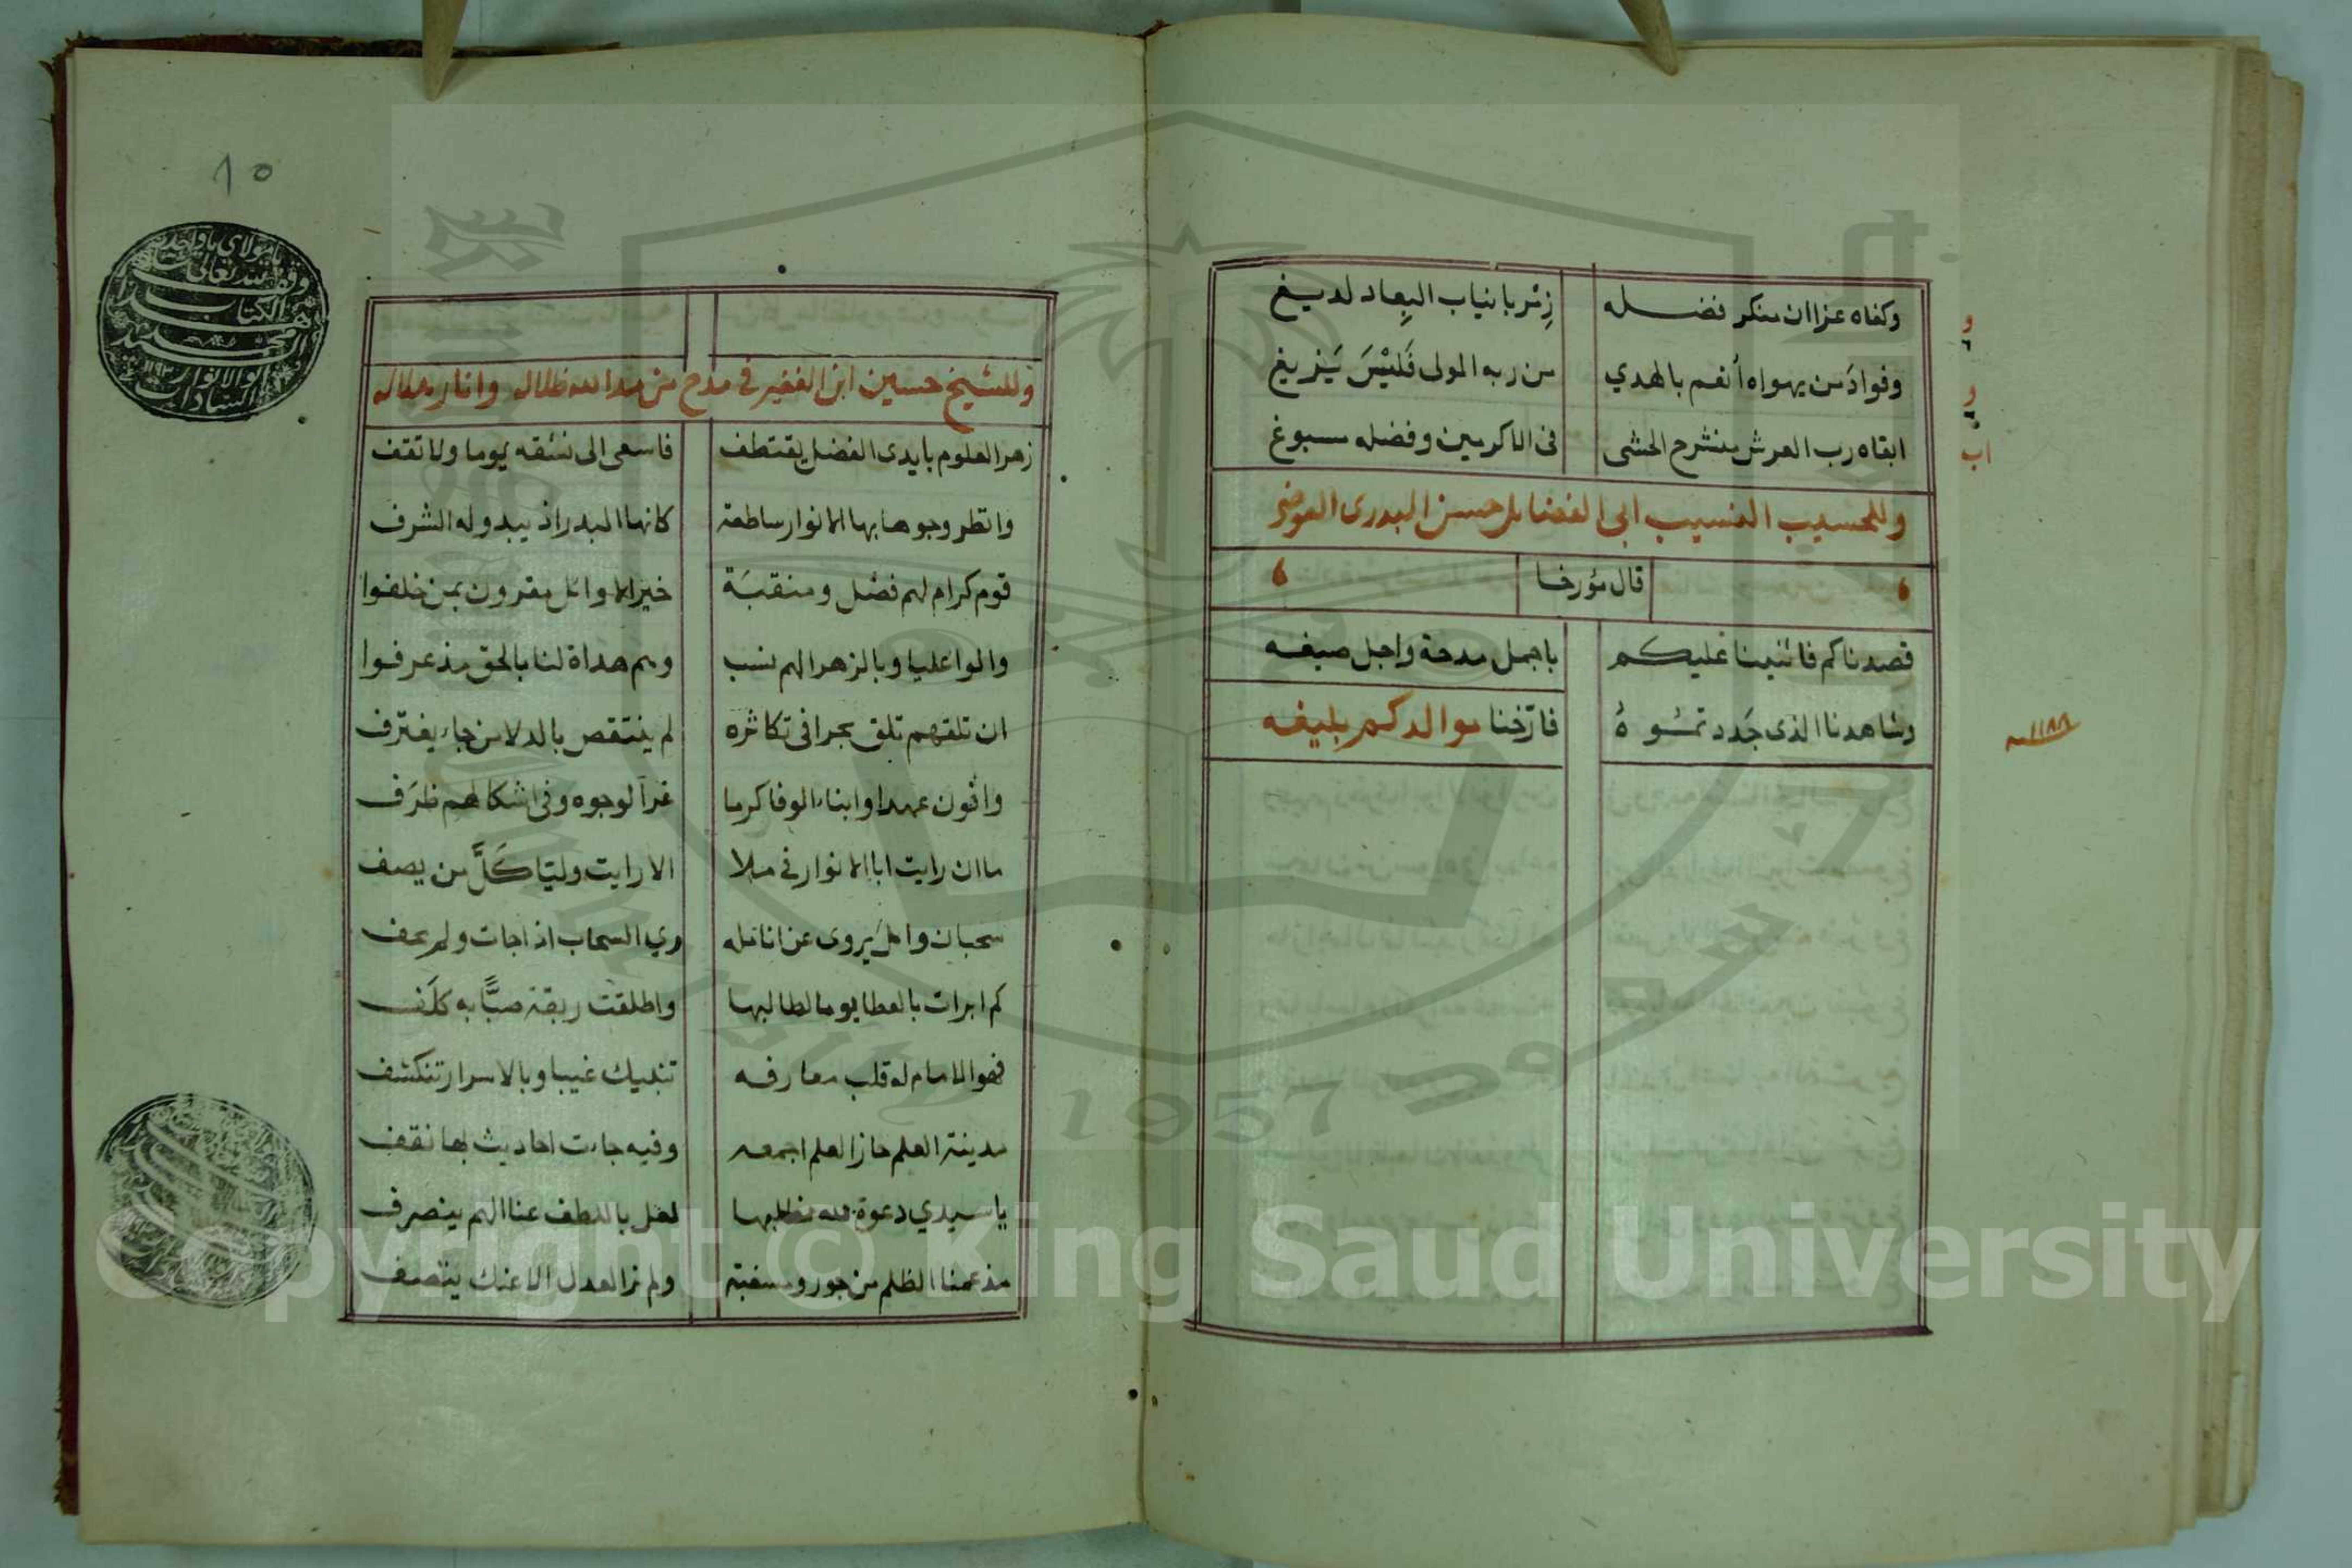 وكفاه عزا ان منكر فضله زئر بانياب البِعاد لديغ
وفوادَ من يهواه أنعم بالهدي من ربه المولى فَليْسَ يَزيغ
ابقاه رب العرش منشرح الحشى فى الاكرمين وفضله سبوغ
وللحسيب النسيب ابى الفضايل حسن البدرى العوضى
قال مؤرخا
قصدناكم فاثنينا عليكم باجمل مدحة واجل صيغه
وشاهدنا الذى جَدد تموُهُ فارّخنا موالدكم بليغه
١١٨٨
١٥
يا مولاي يا واحد
وقف لله تعالى
هذا الكتاب
السيد محمد
ابو الانوار
السادات
وللشيخ حسين ابن الفقير فى مدح من مد الله ظلاله وانار هلاله
زهر العلوم بايدى الفضل يقتطف فاسعى الى نشقه يوما ولا تقف
وانظر وجوها بها الانوار ساطعة كانها البدر اذ يبدو له الشرف
قوم كرام لهم فضل ومنقبَة خير الاوائل مقرون بمن خلفوا
والوا عليا وبالزهرا لهم نسب وهم هداة لنا بالحق مذ عرفوا
ان تلقهم تلق بحرا فى تكاثره لم ينتقص بالدلا من جاء يغترف
وافون عهدا وابناء الوفا كرما غر الوجوه وفى اشكالهم ظرَف
ما ان رايت ابا الانوار فى ملا الا رايت وليّا كَلَّ من يصف
سحبان وائل يروى عن انامله ري السحاب اذا جات ولم تحف
كم ابرات بالعطا يوما لطالبها واطلقت ربقة صبًّا به كلَف
فهو الامام له قلب معارفه تنبيك غيبا وبالاسرار تنكشف
مدينة العلم حاز العلم اجمعه وفيه جاءت احاديث لها نقف
يا سيدي دعوة لله نطلبها لعل باللطف عنا الهم ينصرف
مذ عمنا الظلم من جور ومسغبة ولم نر العدل الا عنك ينتصف
Copyright © King Saud University
1957